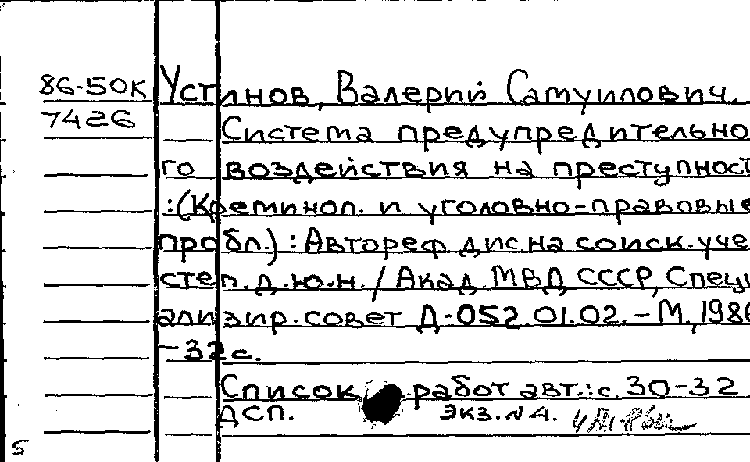 86-50К Устинов, Валерий Самуилович.
7426 Система предупредительно
го воздействия на преступност
:(Креминол. и уголовно-правовые
пробл.) : Автореф. дис. на соиск. уче
степ. д.ю.н. / Акад. МВД СССР, Специ
ализир. совет Д-052.01.02. - М., 1986
-32 с.
Список работ авт.: с. 30-32
ДСП. экз. № 4.
5